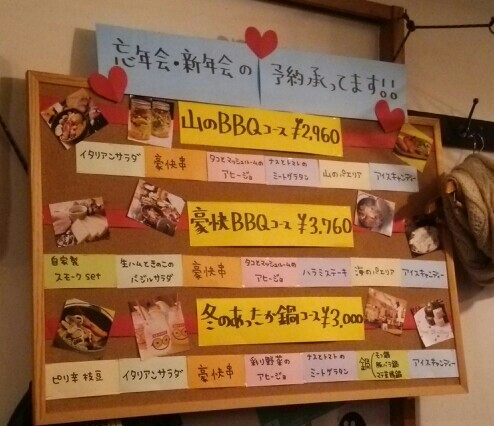 忘年会・新年会の予約承ってます!!
山のBBQコース ¥2,960
イタリアンサラダ
豪快串
タコとマッシュルームのアヒージョ
ナスとトマトのミートグラタン
山のパエリア
アイスキャンディー
豪快BBQコース ¥3,760
自家製スモークset
生ハムときのこのバジルサラダ
豪快串
タコとマッシュルームのアヒージョ
ハラミステーキ
海のパエリア
アイスキャンディー
冬のあったか鍋コース ¥3,000
ピリ辛枝豆
イタリアンサラダ
豪快串
彩り野菜のアヒージョ
ナスとトマトのミートグラタン
鍋
モツ鍋
アイスキャンディー